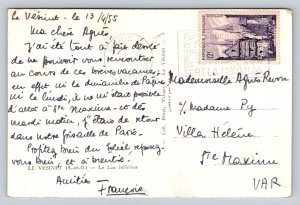 Le Vésinet - le 13/4/55
Ma chère Agnès,
J'ai été tout à fait désolée
de ne pouvoir vous rencontrer
au cours de ces brèves vacances,
en effet ni le dimanche de Pâques
ni le lundi, il ne m'était possible
d'aller à Ste Maxime - et dès
mardi matin, j'étais de retour
dans notre grisaille de Paris.
Profitez bien du soleil, reposez-
vous bien, et à bientôt.
Amitiés -
Françoise
LE VESINET (S.-et-O.) - Le Lac inférieur
Mademoiselle Agnès
c/o Madame Py
Villa Hélène
Ste Maxime
VAR